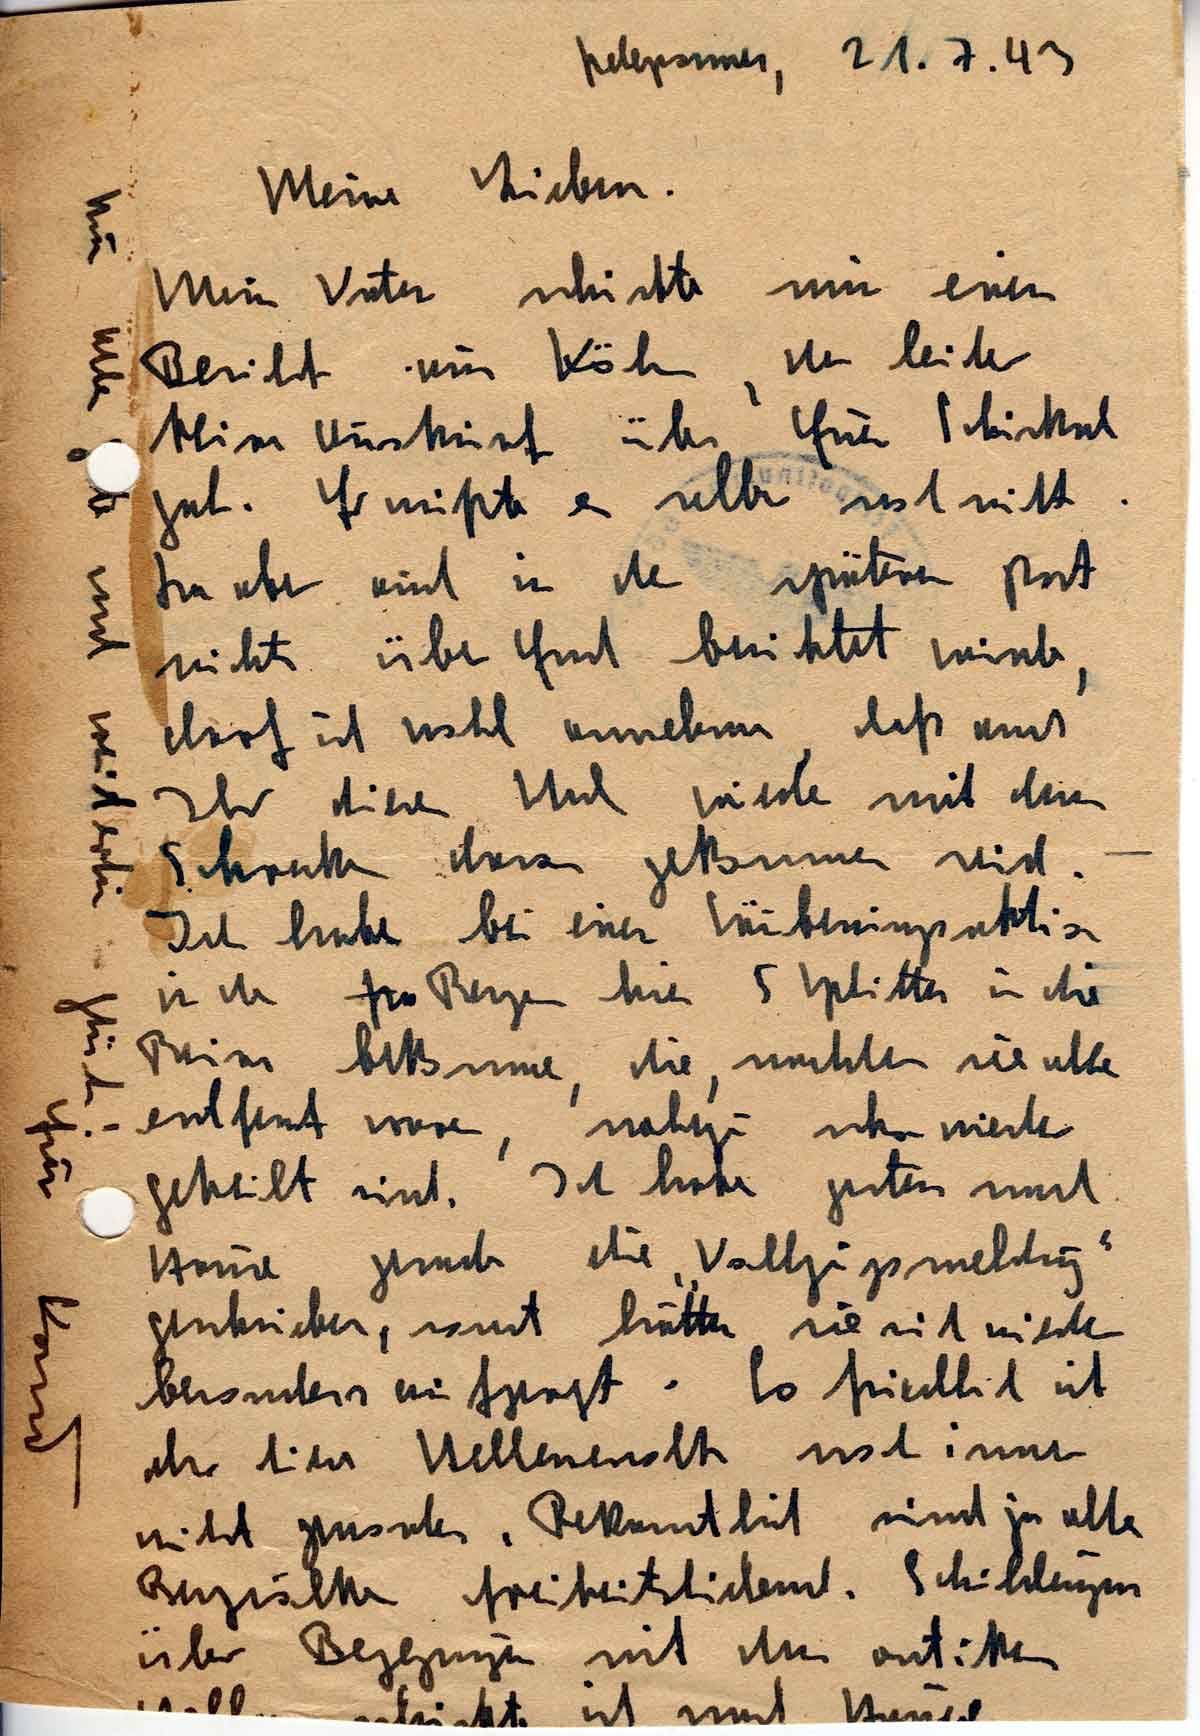 Peleponnes, 21.7.43
Meine Lieben.
Mein Vater schickte mir einen
Bericht aus Köln, der leider
keine Auskunft über Euer Schicksal
gab. Er wußte es selber noch nicht.
Da aber auch in der späteren Post
nichts über Euch berichtet wurde,
darf ich wohl annehmen, daß auch
Ihr dieses Mal wieder mit dem
Schrecken davon gekommen seid. —
Ich habe bei einer Säuberungsaktion
in den Bergen hier 5 Splitter in die
Beine bekommen, die, nachdem sie alle
entfernt waren, nahezu schon wieder
geheilt sind. Ich habe gestern nach
Hause gerade die „Vollzugsmeldung“
geschrieben, sonst hätten sie sich wieder
besonders aufgeregt. So friedlich ist
das liebe Hellenenvolk noch immer
nicht geworden. Bekanntlich sind ja alle
Bergvölker freiheitsliebend. Schilderungen
über Begegnungen mit den antiken
schickte ich nach Hause
Für alle und weiterhin
Euer